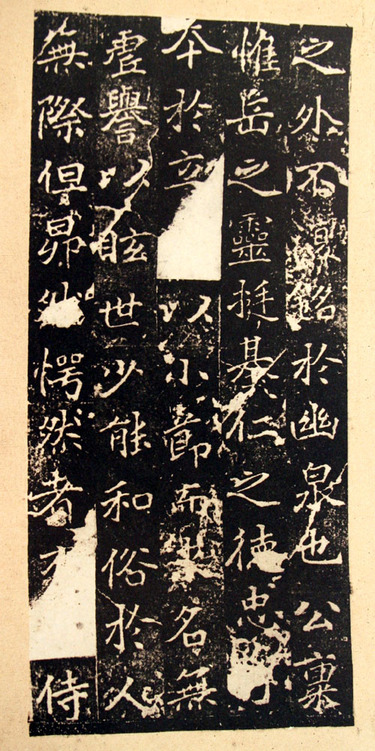 之外不銘於幽泉也公稟
惟岳之靈挺基仁之德忠
本於立以小節而名無
虛譽以眩世少能和俗於人
蕪際但昂然愕然者侍